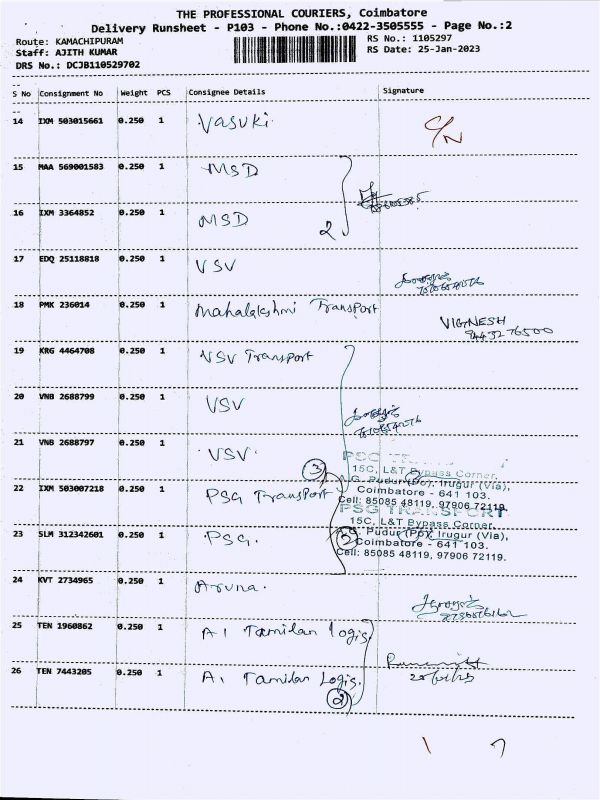 THE PROFESSIONAL COURIERS, Coimbatore
Delivery Runsheet - P103 - Phone No.:0422-3505555 - Page No.:2
Route: KAMACHIPURAM
RS No.: 1105297
Staff: AJITH KUMAR
RS Date: 25-Jan-2023
DRS No.: DCJB110529702
S No Consignment No Weight PCS Consignee Details Signature
14 IXM 503015661 0.250 1 Vasuki C/N
15 MAA 569001583 0.250 1 MSD
16 IXM 3364852 0.250 1 MSD 2
17 EDQ 25118818 0.250 1 VSV
18 PMK 236014 0.250 1 Mahalakshmi Transport VIGNESH
9443276500
19 KRG 4464708 0.250 1 VSV Transport
20 VNB 2688799 0.250 1 VSV
21 VNB 2688797 0.250 1 VSV.
3
PSG
15C, L&T Bypass Corner,
G. Pudur (Po), Irugur (Via),
22 IXM 503007218 0.250 1 PSG Transport
Coimbatore - 641 103.
Cell: 85085 48119, 97906 72119.
PSG TRANSPORT
15C, L&T Bypass Corner,
23 SLM 312342601 0.250 1 PSG.
Pudur (Po), Irugur (Via),
Coimbatore - 641 103.
Cell: 85085 48119, 97906 72119.
24 KVT 2734965 0.250 1 Aruna.
25 TEN 1960862 0.250 1 A1 Tamilan logis.
26 TEN 7443205 0.250 1 A1 Tamilan Logis.
2